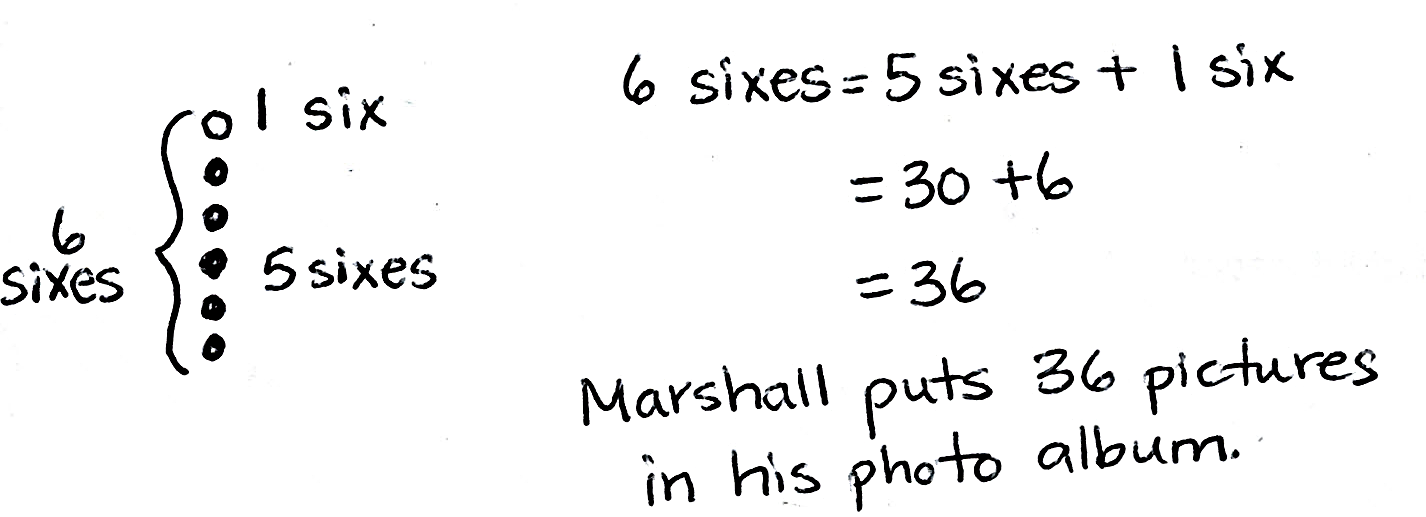 1 six
6
sixes
5 sixes
6 sixes = 5 sixes + 1 six
= 30 + 6
= 36
Marshall puts 36 pictures
in his photo album.